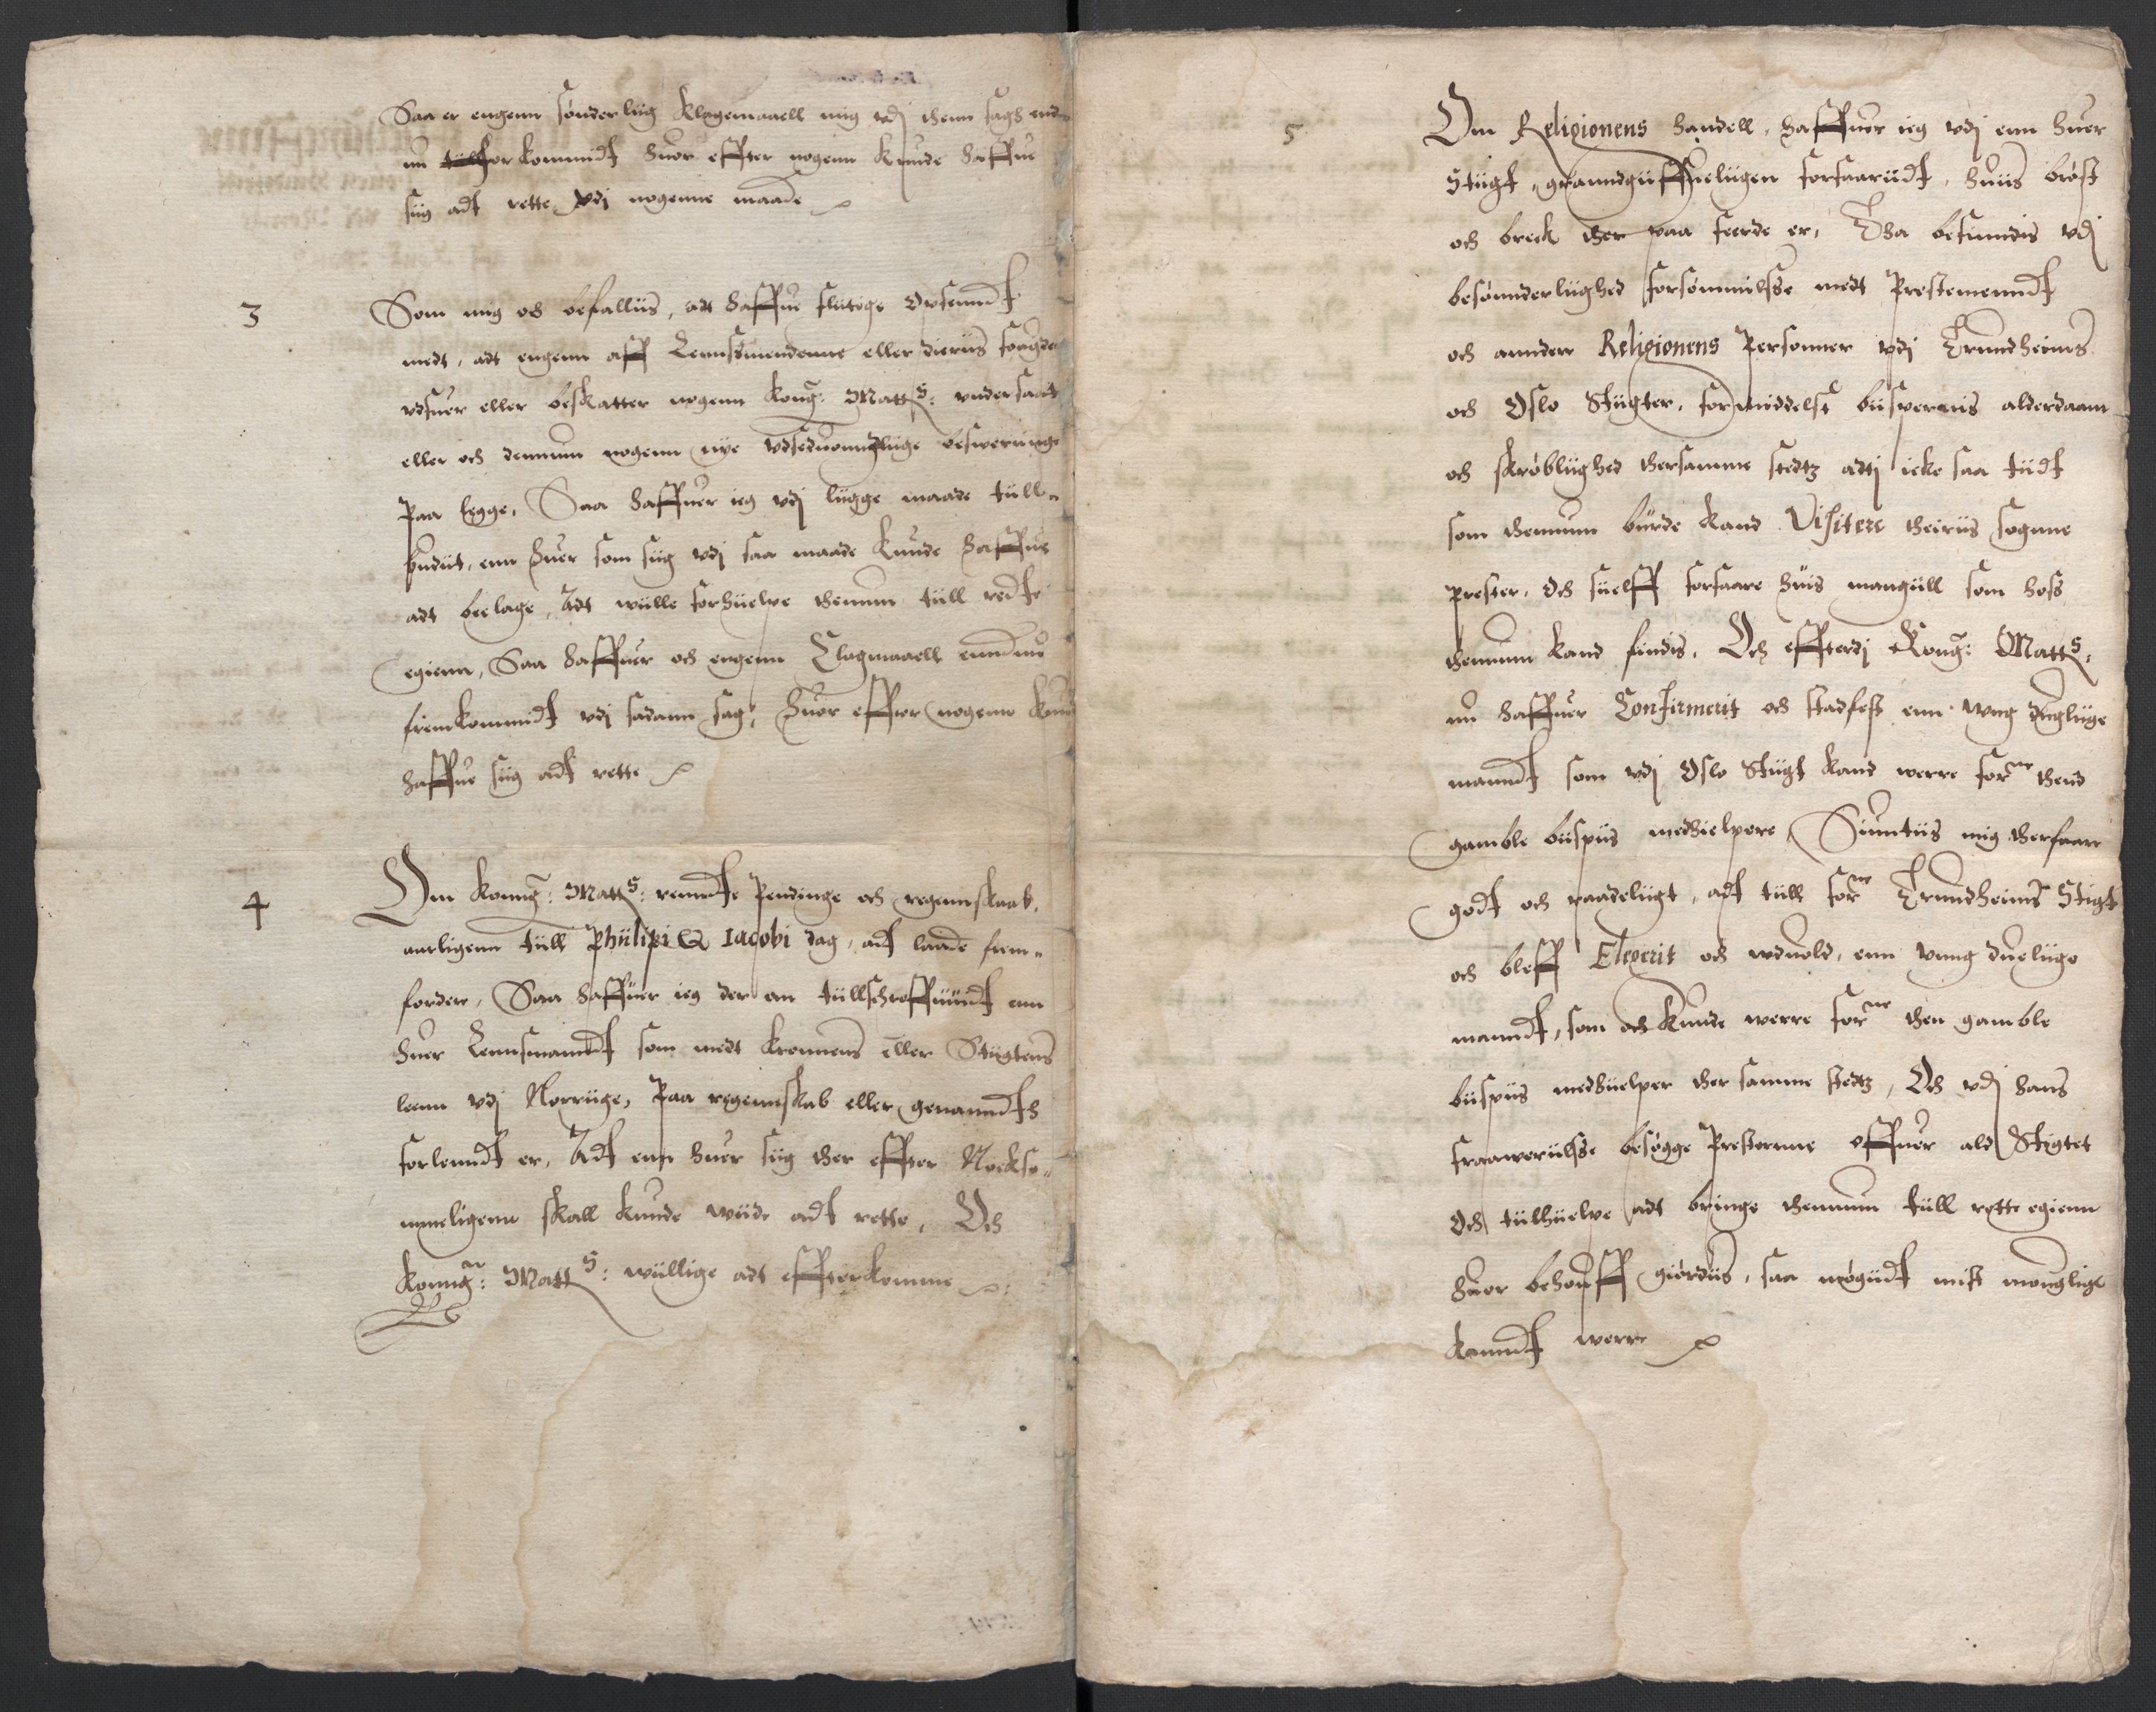 Saa er engenn sønderlüg klagemaaell mig vdj thenn sagh end-
nu forkommidt huor effter nogenn kunde haffue
süg adt rette vdj nogenne maade
3
Som mig och befallüs, att haffue flütige Opseenndt
medt, adt engenn aff Lennsmendenne eller dieriis fougder
vdsuer eller beskatter nogenn Kong: Matts: vndersaat
eller och dennum nogenn nye besweringe
paa legge, Saa haffuer ieg vdj lügge maade tüll-
budüt, enn huer som süg vdj saa maade kunde haffue
adt beclage, Adt wülle forhüelpe thennum tüll redt
egienn, Saa haffuer och engenn Clagmaaell enndnu
fremkommidt vdj sadann sag, huor effter nogenn kund
haffue süg adt rette
4
Om Konng: Matts: renndte Pendinge och regennskaab,
aarligenn tüll Phülipi & Iacobi dag, adt laade frem-
forder, Saa haffuer ieg der om tüllschreffüüdt enn
huer Lennsmanndt som medt kronnens eller Stügtens
leenn vdj Norrüge, paa regennskab eller genanndth
forlenndt er, Adt enn huer süg ther effter Nockso-
mmeligenn skall kunde wüde adt rette, Och
Konng: Matts: wüllige adt effterkomme
5
Om Religionens handell, haffuer ieg vdj enn huer
Stügt, granndgüffuelügen forfaarüdt, huüs brøst
och breck ther paa feerde er, Tha befinndis vdj
besønnderlüghed forsømmülsse medt Prestemenndt
och annder Religionens Personner vdj Trundheims
och Oslo Stügter, formiddelst büspernis alderdaam
och skrøblüghed thersamme stedtz adtj icke saa tüdt
som thennum burde kand Visitere theiriis sogne
prester, Och süelff forfaare huüs mangüll som hoss
thennum kand findis, Och effterdj Kong: Matts:
nu haffuer Confirmerit och stadfest enn wng duglüge
manndt som vdj Oslo Stügt kand werre forne thend
gamble büspüs medhielpere, Siuntüs mig therfaare
godt och raadelügt, adt tüll forne Trundheims Stigt
och bleff Elegerit och wduold, enn wnng duelüge
manndt, som och kunde werre forne then gamble
büspüs medhüelper ther samme stedtz, Och vdj hans
fraawerülsse besøgge Presterne offuer ald Stigtet
Och tülhüelpe adt bringe thennum tüll rette egienn
huor behouff giørdüs, saa møgüdt müst mounglige
kanndt werre